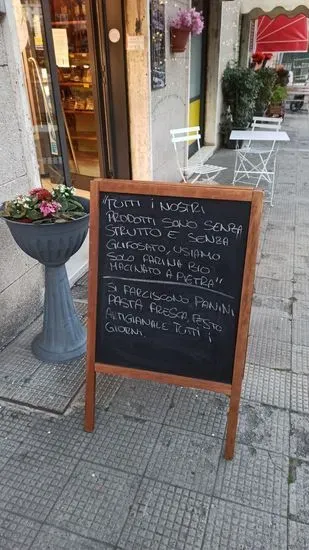 "TUTTI I NOSTRI
PRODOTTI SONO SENZA
STRUTTO E SENZA
GLIFOSATO, USIAMO
SOLO FARINA BIO
MACINATO A PIETRA"
SI FARCISCONO PANINI
PASTA FRESCA, PESTO
ARTIGIANALE TUTTI I
GIORNI.